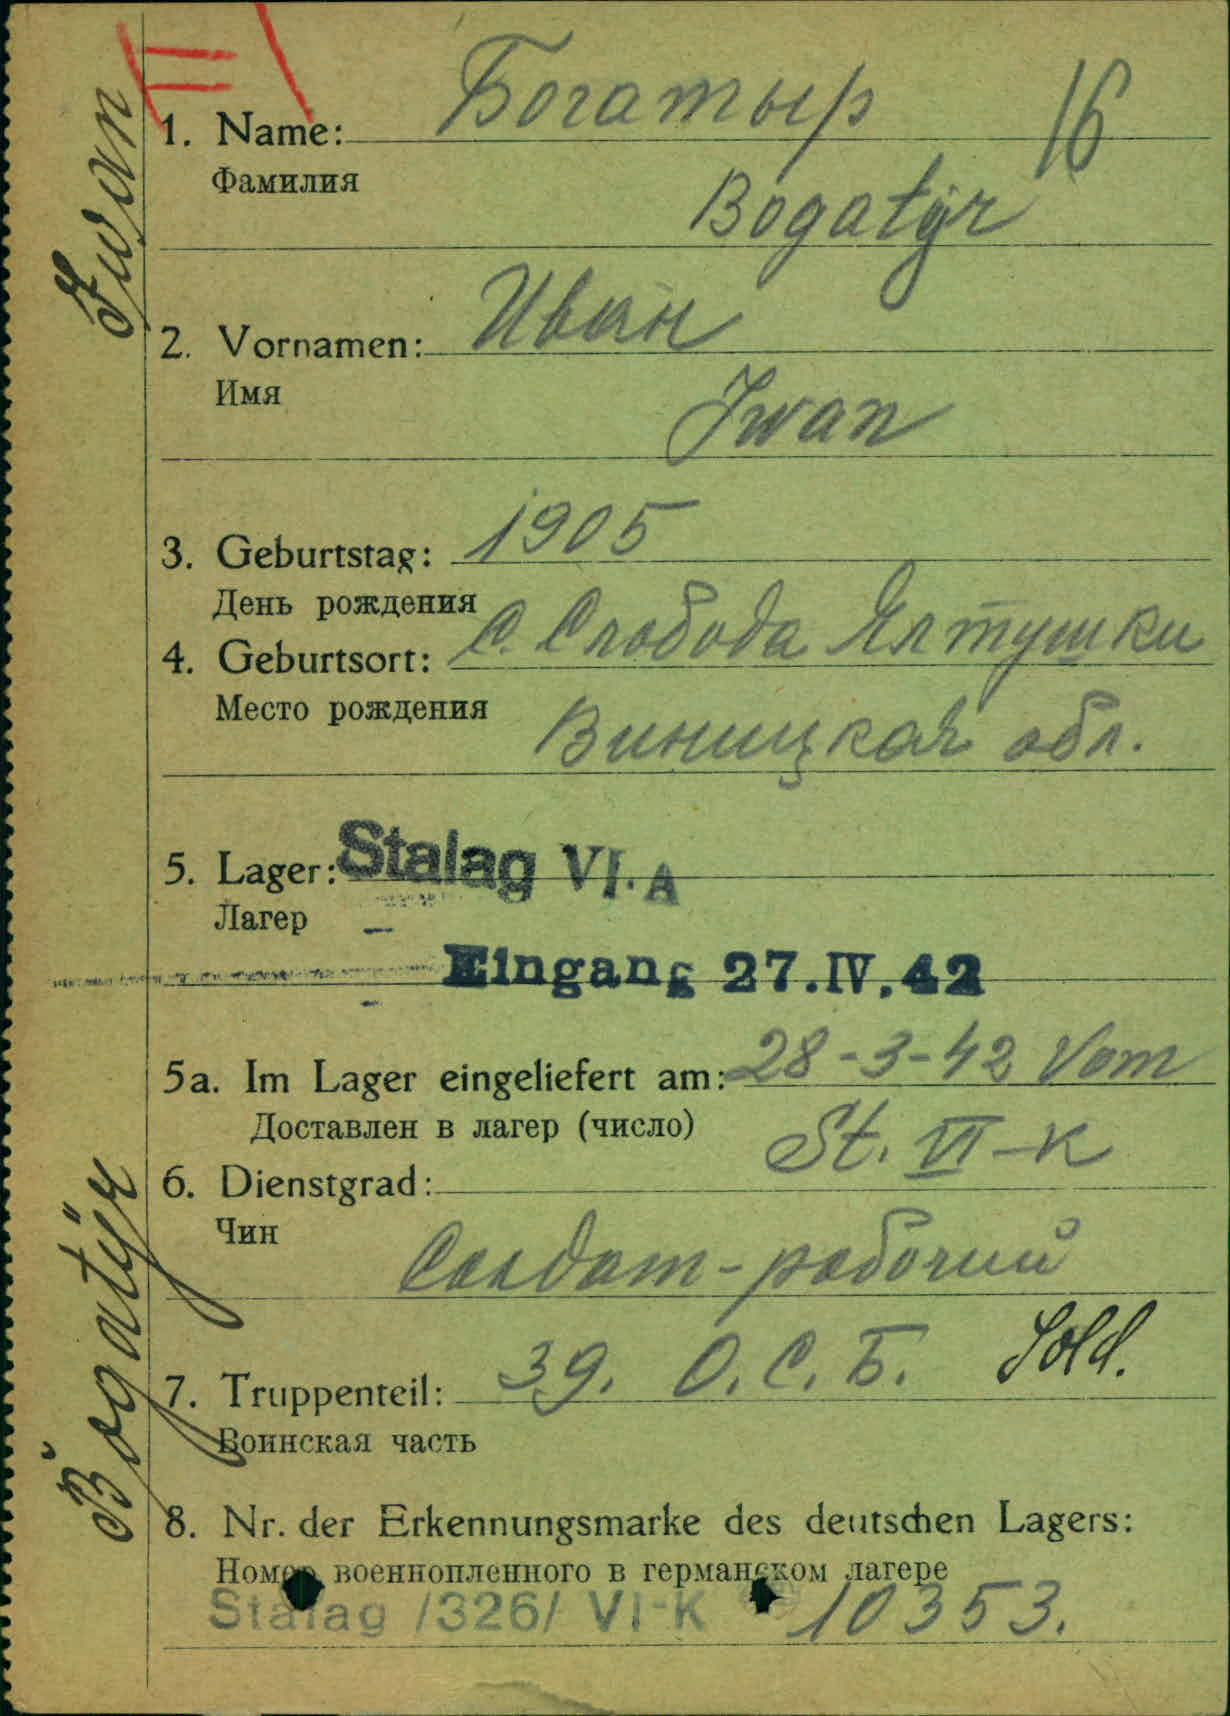 Iwan
Bogatÿr
1. Name: Богатыр 16
Фамилия
Bogatÿr
2. Vornamen: Иван
Имя
Iwan
3. Geburtstag: 1905
День рождения
4. Geburtsort: с. Слобода Ялтушки
Место рождения
Виницкая обл.
5. Lager: Stalag VI. A
Лагер
Eingang 27. IV. 42
5a. Im Lager eingeliefert am: 28-3-42 Vom
Доставлен в лагер (число)
St. VI-K
6. Dienstgrad:
Чин
Солдат-рабочий
7. Truppenteil: 39. О. С. Б. Sold.
Воинская часть
8. Nr. der Erkennungsmarke des deutschen Lagers:
Номер военнопленного в германском лагере
Stalag /326/ VI-K 10353.